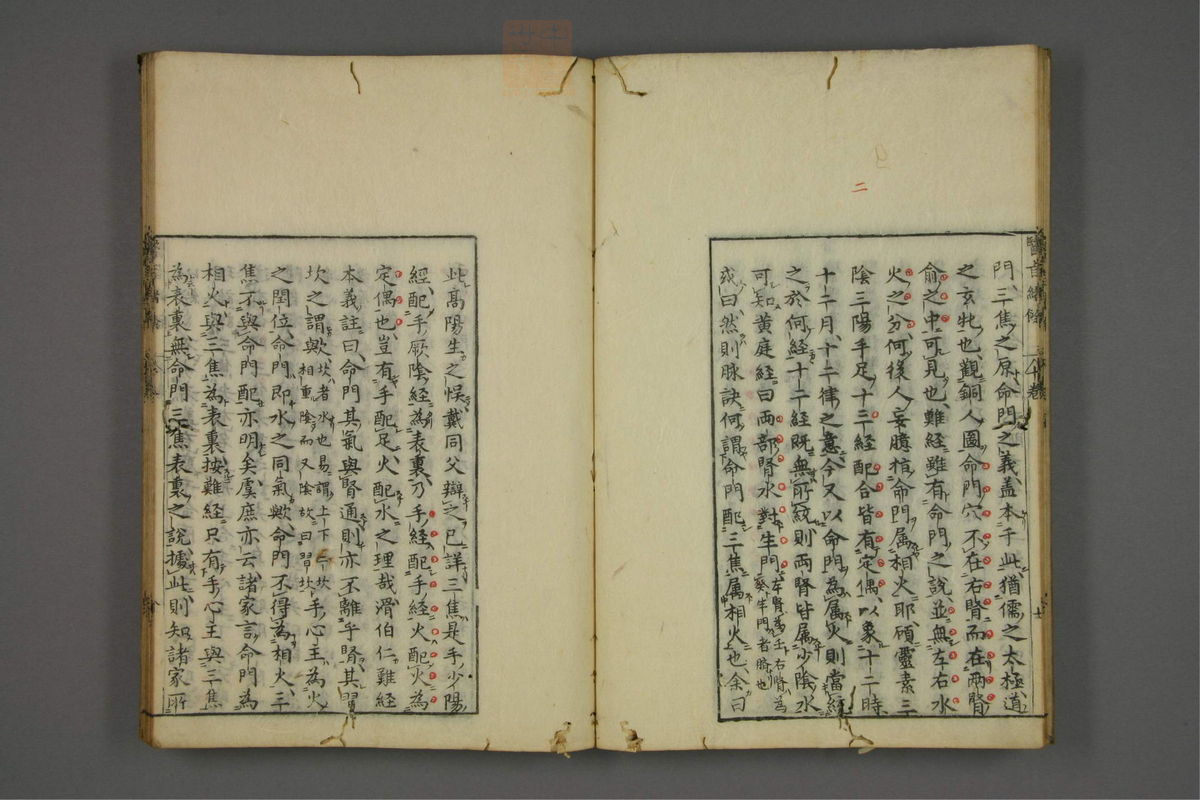 門三焦之原命門之義蓋本于此猶儒之太極道
之玄牝也觀銅人圖命門穴不在右腎而在兩腎
俞之中可見也難經雖有命門之說並無左右水
火之分何後人妄臆指命門属相火耶碩靈素三
陰三陽手足十二經配合皆有定偶以象十二時
十二月十二律之意今又以命門為属火則當經
之於何經十二經既無所統則兩腎皆属少陰水
可知黃庭經曰兩部腎水對生門左腎為壬右腎為癸生門者臍也
或曰然則脉訣何謂命門配三焦属相火也余曰
此髙陽生之悞戴同父辯之已詳三焦是手少陽
經配手厥陰經為表裏乃手經配手經火配火為
定偶也豈有手配足火配水之理哉滑伯仁難經
本義註曰命門其氣與腎通則亦不離乎腎其習
坎之謂歟坎者水也易謂上下二坎相重陰而又陰故曰習坎手心主為火
之閏位命門即水之同氣歟命門不得為相火三
焦不與命門配亦明矣虞庶亦云諸家言命門為
相火與三焦為表裏按難經只有手心主與三焦
為表裏無命門三焦表裏之說據此則知諸家所
二